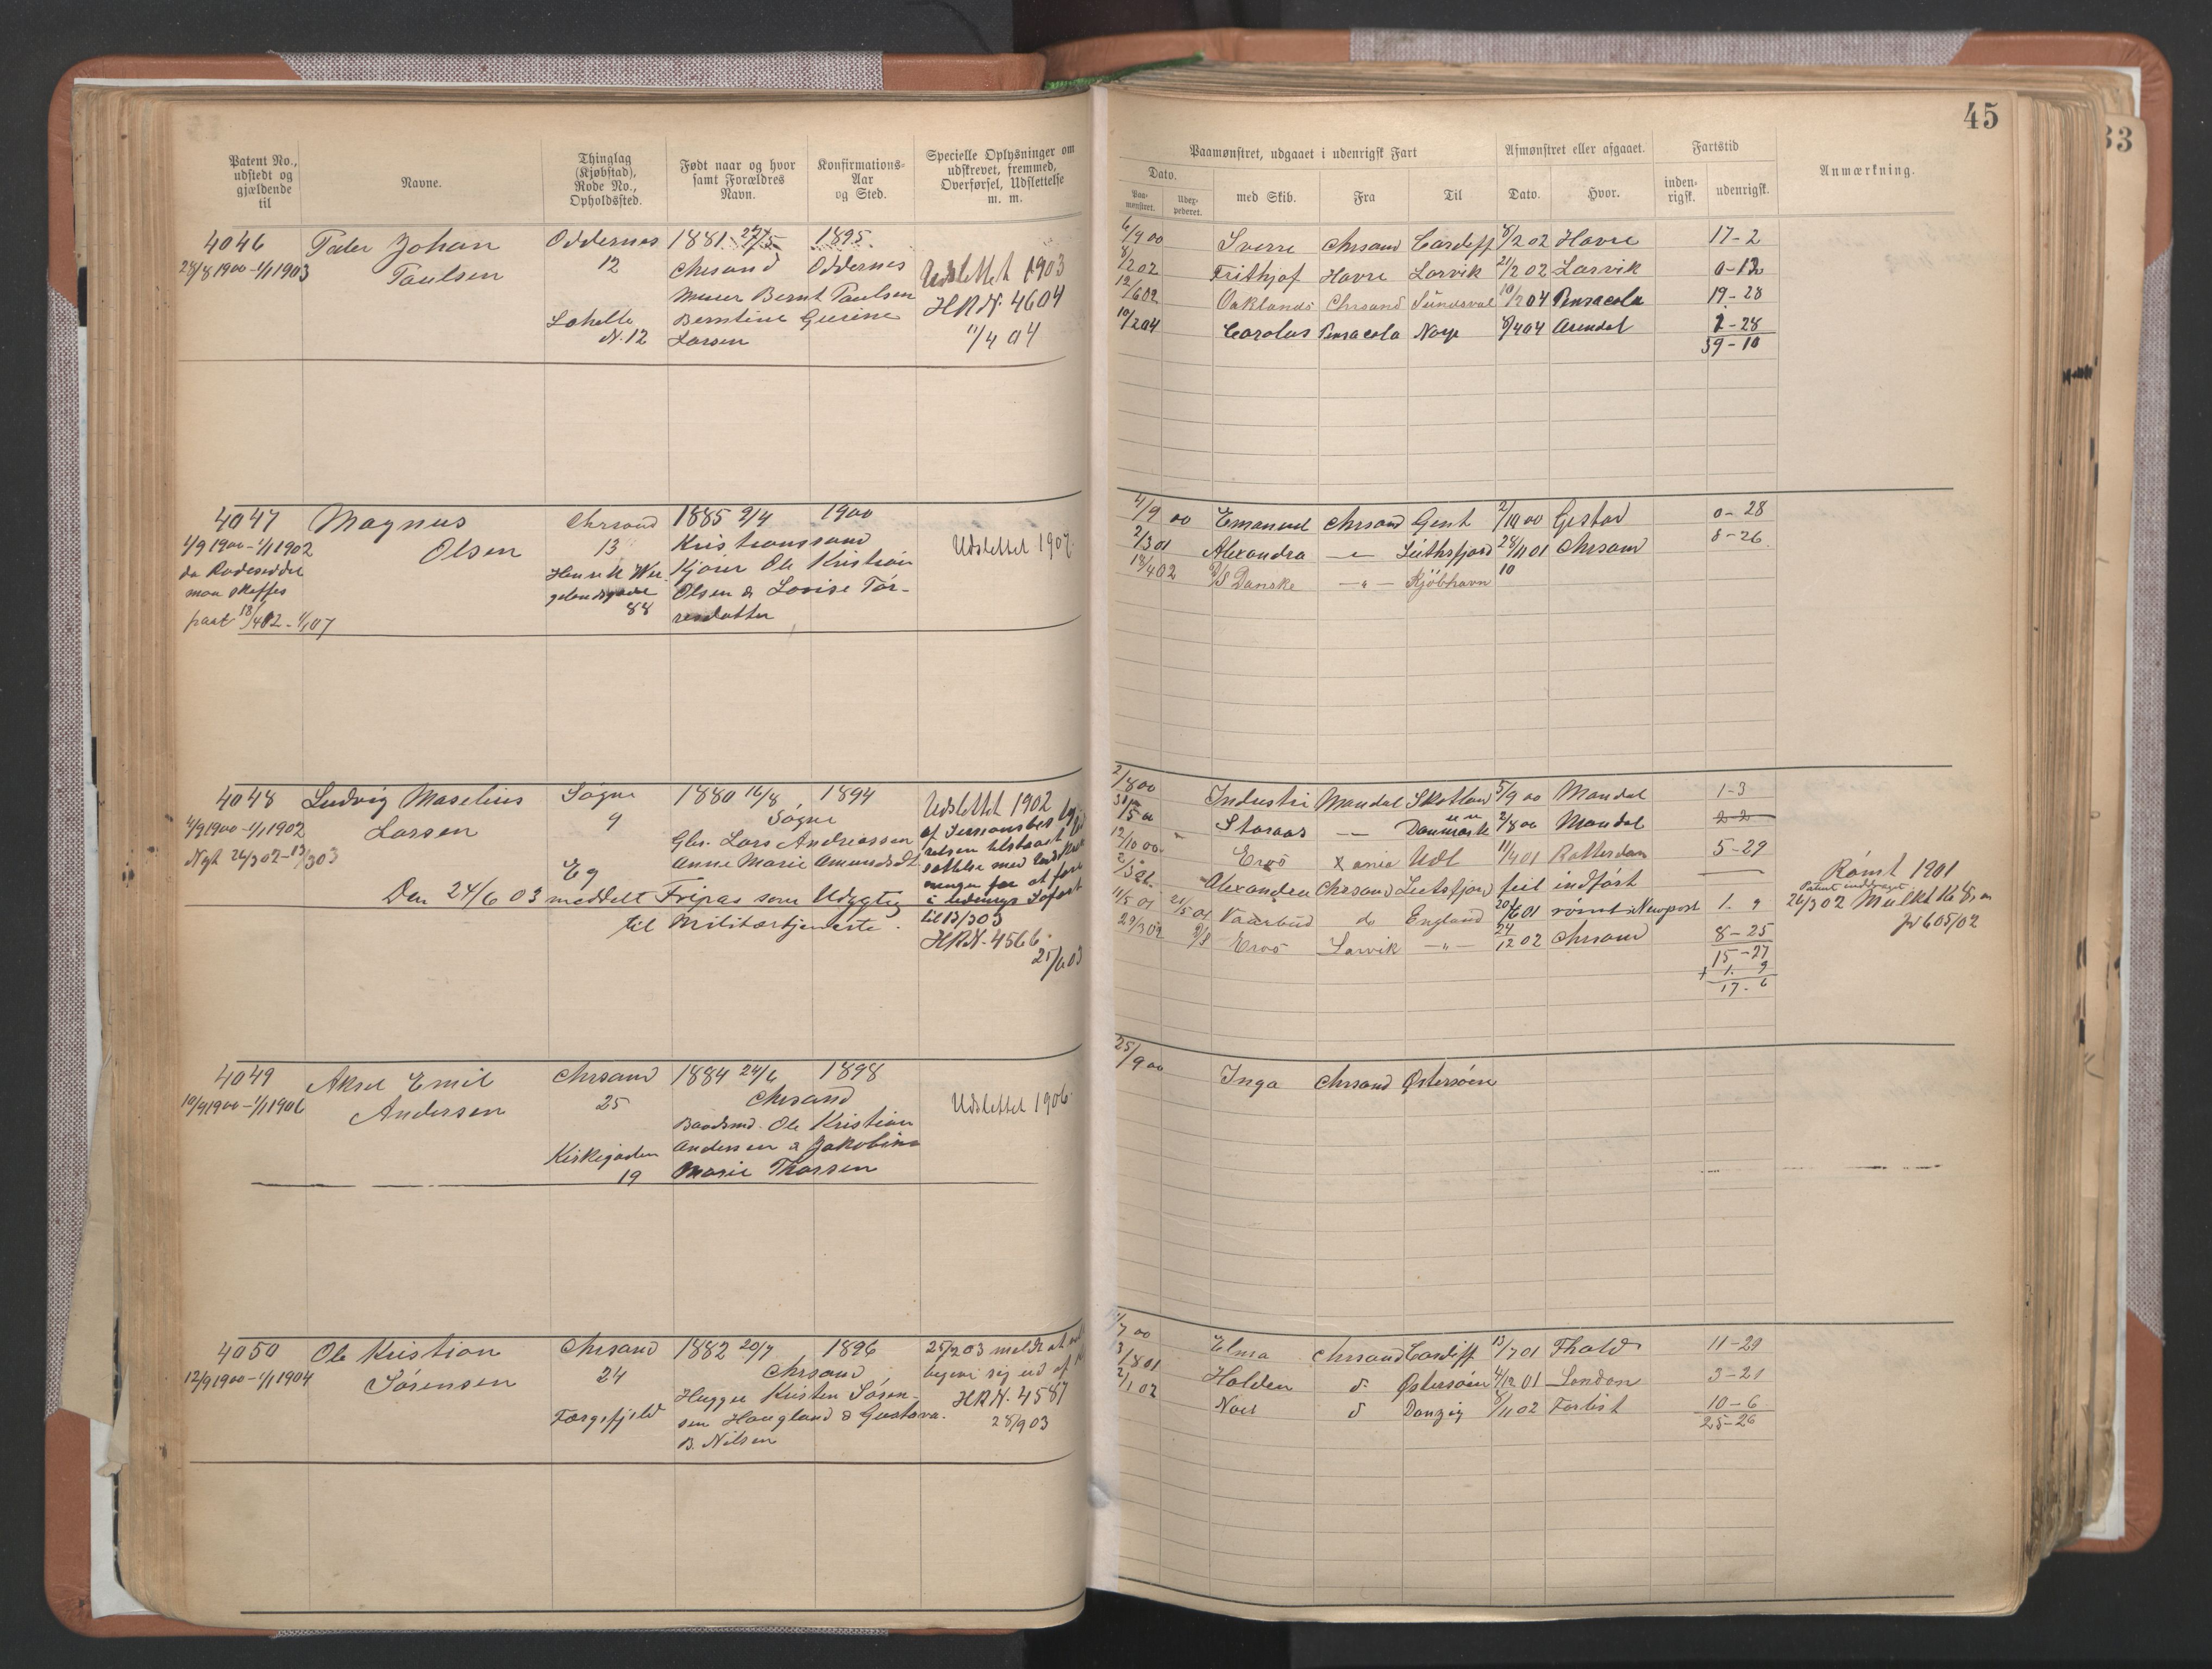 45
33
Patent No., udstedt og gjældende til
Navne.
Thinglag (Kjøbstad), Rode No., Opholdssted.
Født naar og hvor samt Forældres Navn.
Konfirmations-Aar og Sted.
Specielle Oplysninger om udskrevet, fremmed, Overførsel, Udslettelse m. m.
Paamønstret, udgaaet i udenrigsk Fart
Afmønstret eller afgaaet.
Fartstid
Anmærkning.
Dato.
Paa-mønstret.
Udex-pederet.
med Skib.
Fra
Til
Dato.
Hvor.
inden-rigsk.
udenrigsk.
4046 Peder Johan Oddernes 1881 27/5 1895
28/8 1900 - 1/1 1903 Paulsen 12 Chrsand Oddernes Udslettet 1903
Murer Bernt Paulsen HRN. 4604
Lahelle Berntine Gurine 11/4 04
N. 12 Larsen
6/9 00 Sverre Chrsand Cardiff 8/2 02 Havre 17-2
8/2 02 Frithjof Havre Larvik 21/2 02 Larvik 0-13
12/6 02 Oaklands Chrsand Sundsval 10/2 04 Pensacola 19-28
10/2 04 Carolus Pensacola Norge 8/4 04 Arendal 1-28
39-10
4047 Magnus Chrsand 1885 9/4 1900
4/9 1900 - 1/1 1902 Olsen 13 Kristianssand Udslettet 1907.
da Rodeseddel Henrik Wer- Kjører Ole Kristian
maa skaffes gelandsgade Olsen & Lovise Tør-
paat 18/4 02 - 1/1 07 88 resdatter
4/9 00 Emanuel Chrsand Gent 2/10 00 Gestad 0-28
2/3 01 Alexandra -"- Leithsfjord 28/11 01 Chrsand 8-26
18/4 02 D/S Danske -"- Kjöbhavn 10
4048 Ludvig Maselius Søgne 1880 16/8 1894 Udslettet 1902
4/9 1900 - 1/1 1902 Larsen 9 Søgne af Sessionsbesty-
Nyt 26/3 02 - 13/3 03 Gbr. Lars Andreassen relsen tilstaaet Ud-
Eg Anne Marie Amundsdt. sættelse med
Den 24/6 03 meddelt Fripas som Udygtig
til Militærtjeneste.
til 13/3 03
HRN. 4566
25/6 03
2/8 00 Industri Mandal Skotland 5/9 00 Mandal 1-3
Staraas -"- Danmark 2/8 00 Mandal 2-2
12/10 00 Erös Xania Udl 11/4 01 Rotterdam 5-29
Alexandra Chrsand Leitsfjord feil indført
11/5 01 21/5 01 Vaarbud do England 20/6 01 rømt i Newport 1. 9
29/3 02 D/S Erös Larvik -"- 24/12 02 Chrsand 8-25
15-27
+ 1. 9
17. 6
Rømt 1901
Patent inddraget
26/3 02 Mulkt 16 Kr
jr 605/02
4049 Aksel Emil Chrsand 1884 24/6 1898
10/9 1900 - 1/1 1906 Andersen 25 Chrsand Udslettet 1906.
Baadsmd. Ole Kristian
Kirkegaden Andersen & Jakobine
19 Marie Thorsen
25/9 00 Inga Chrsand Østersøen
4050 Ole Kristian Chrsand 1882 20/7 1896 25/2 03 meldt at
12/9 1900 - 1/1 1904 Sørensen 24 Chrsand begive sig ud af
Hugger Kristen Søren- HRN. 4587
Torgsfjeld sen Haugland & Gustava 28/9 03
B. Nilsen
11/7 00 Elma Chrsand Cardiff 13/7 01 Fhald 11-29
3/8 01 Halden do Østersøen 4/12 01 London 3-21
2/1 02 Noes do Danzig 8/11 02 Forlist 10-6
25-26